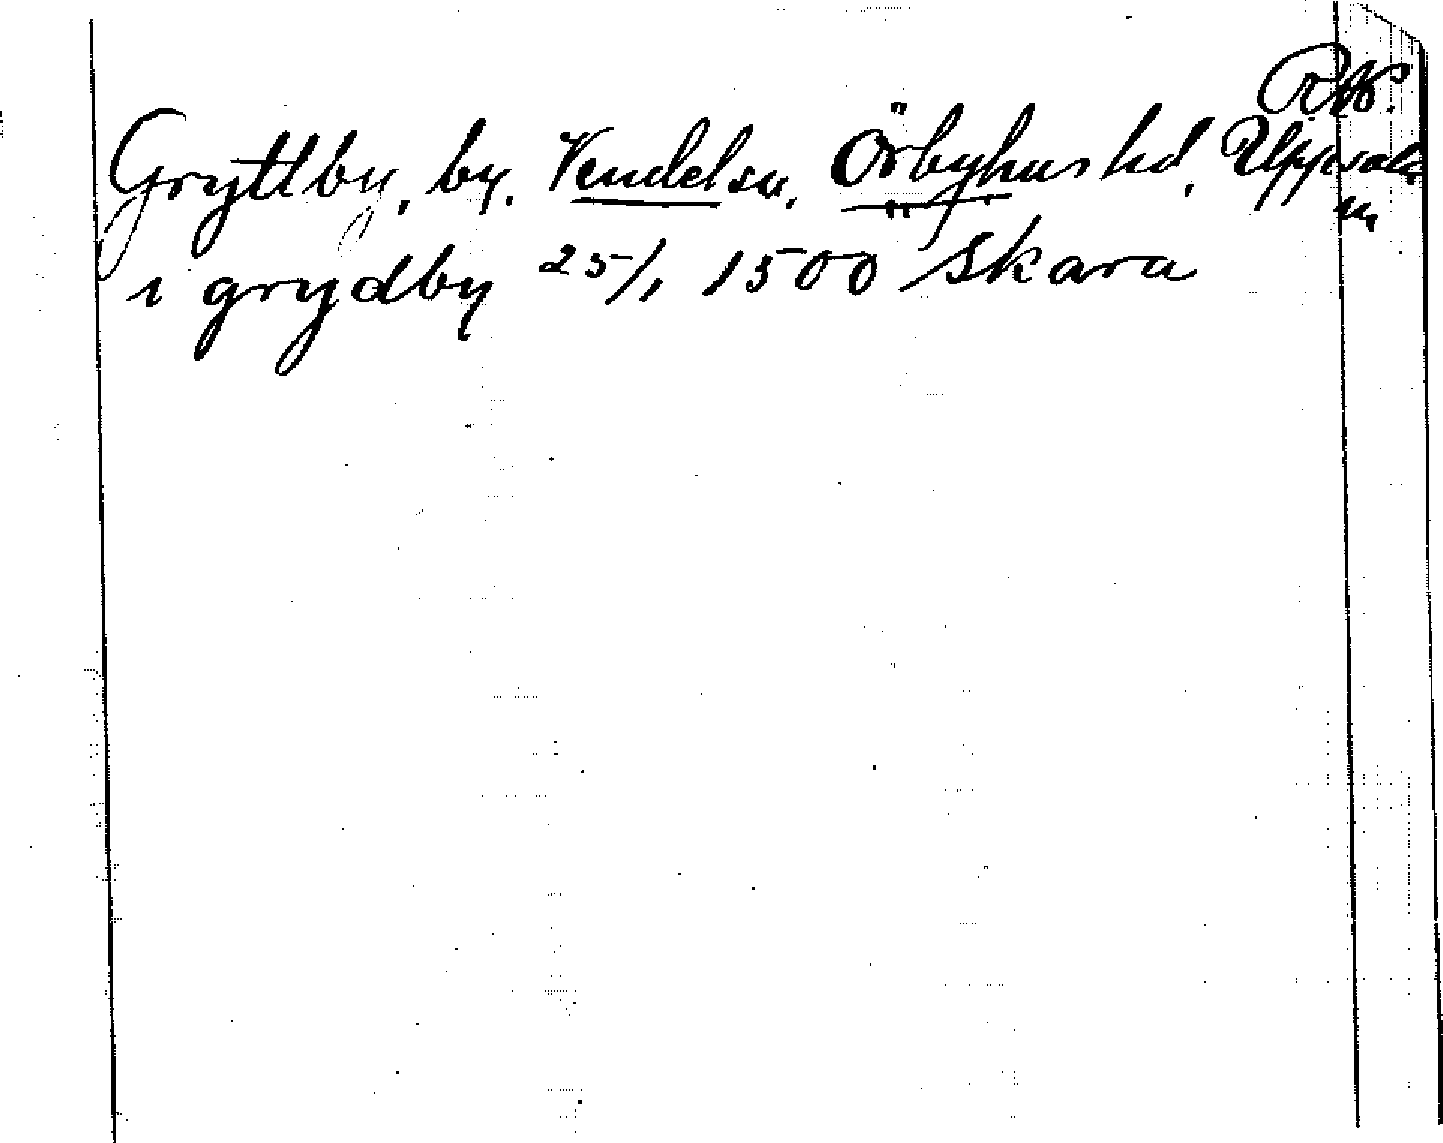 Gryttby, by, Vendels sn, Örbyhus hd, Uppsala
i grydby 25/1 1500 Skara